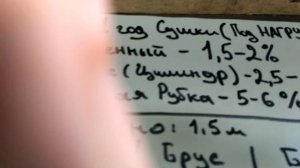 год Сушки (Под НАГРУ
енный - 1,5-2%
(Цилиндр) - 2,5-
ая Рубка - 5-6%
но: 1,5 м
Брус | Б